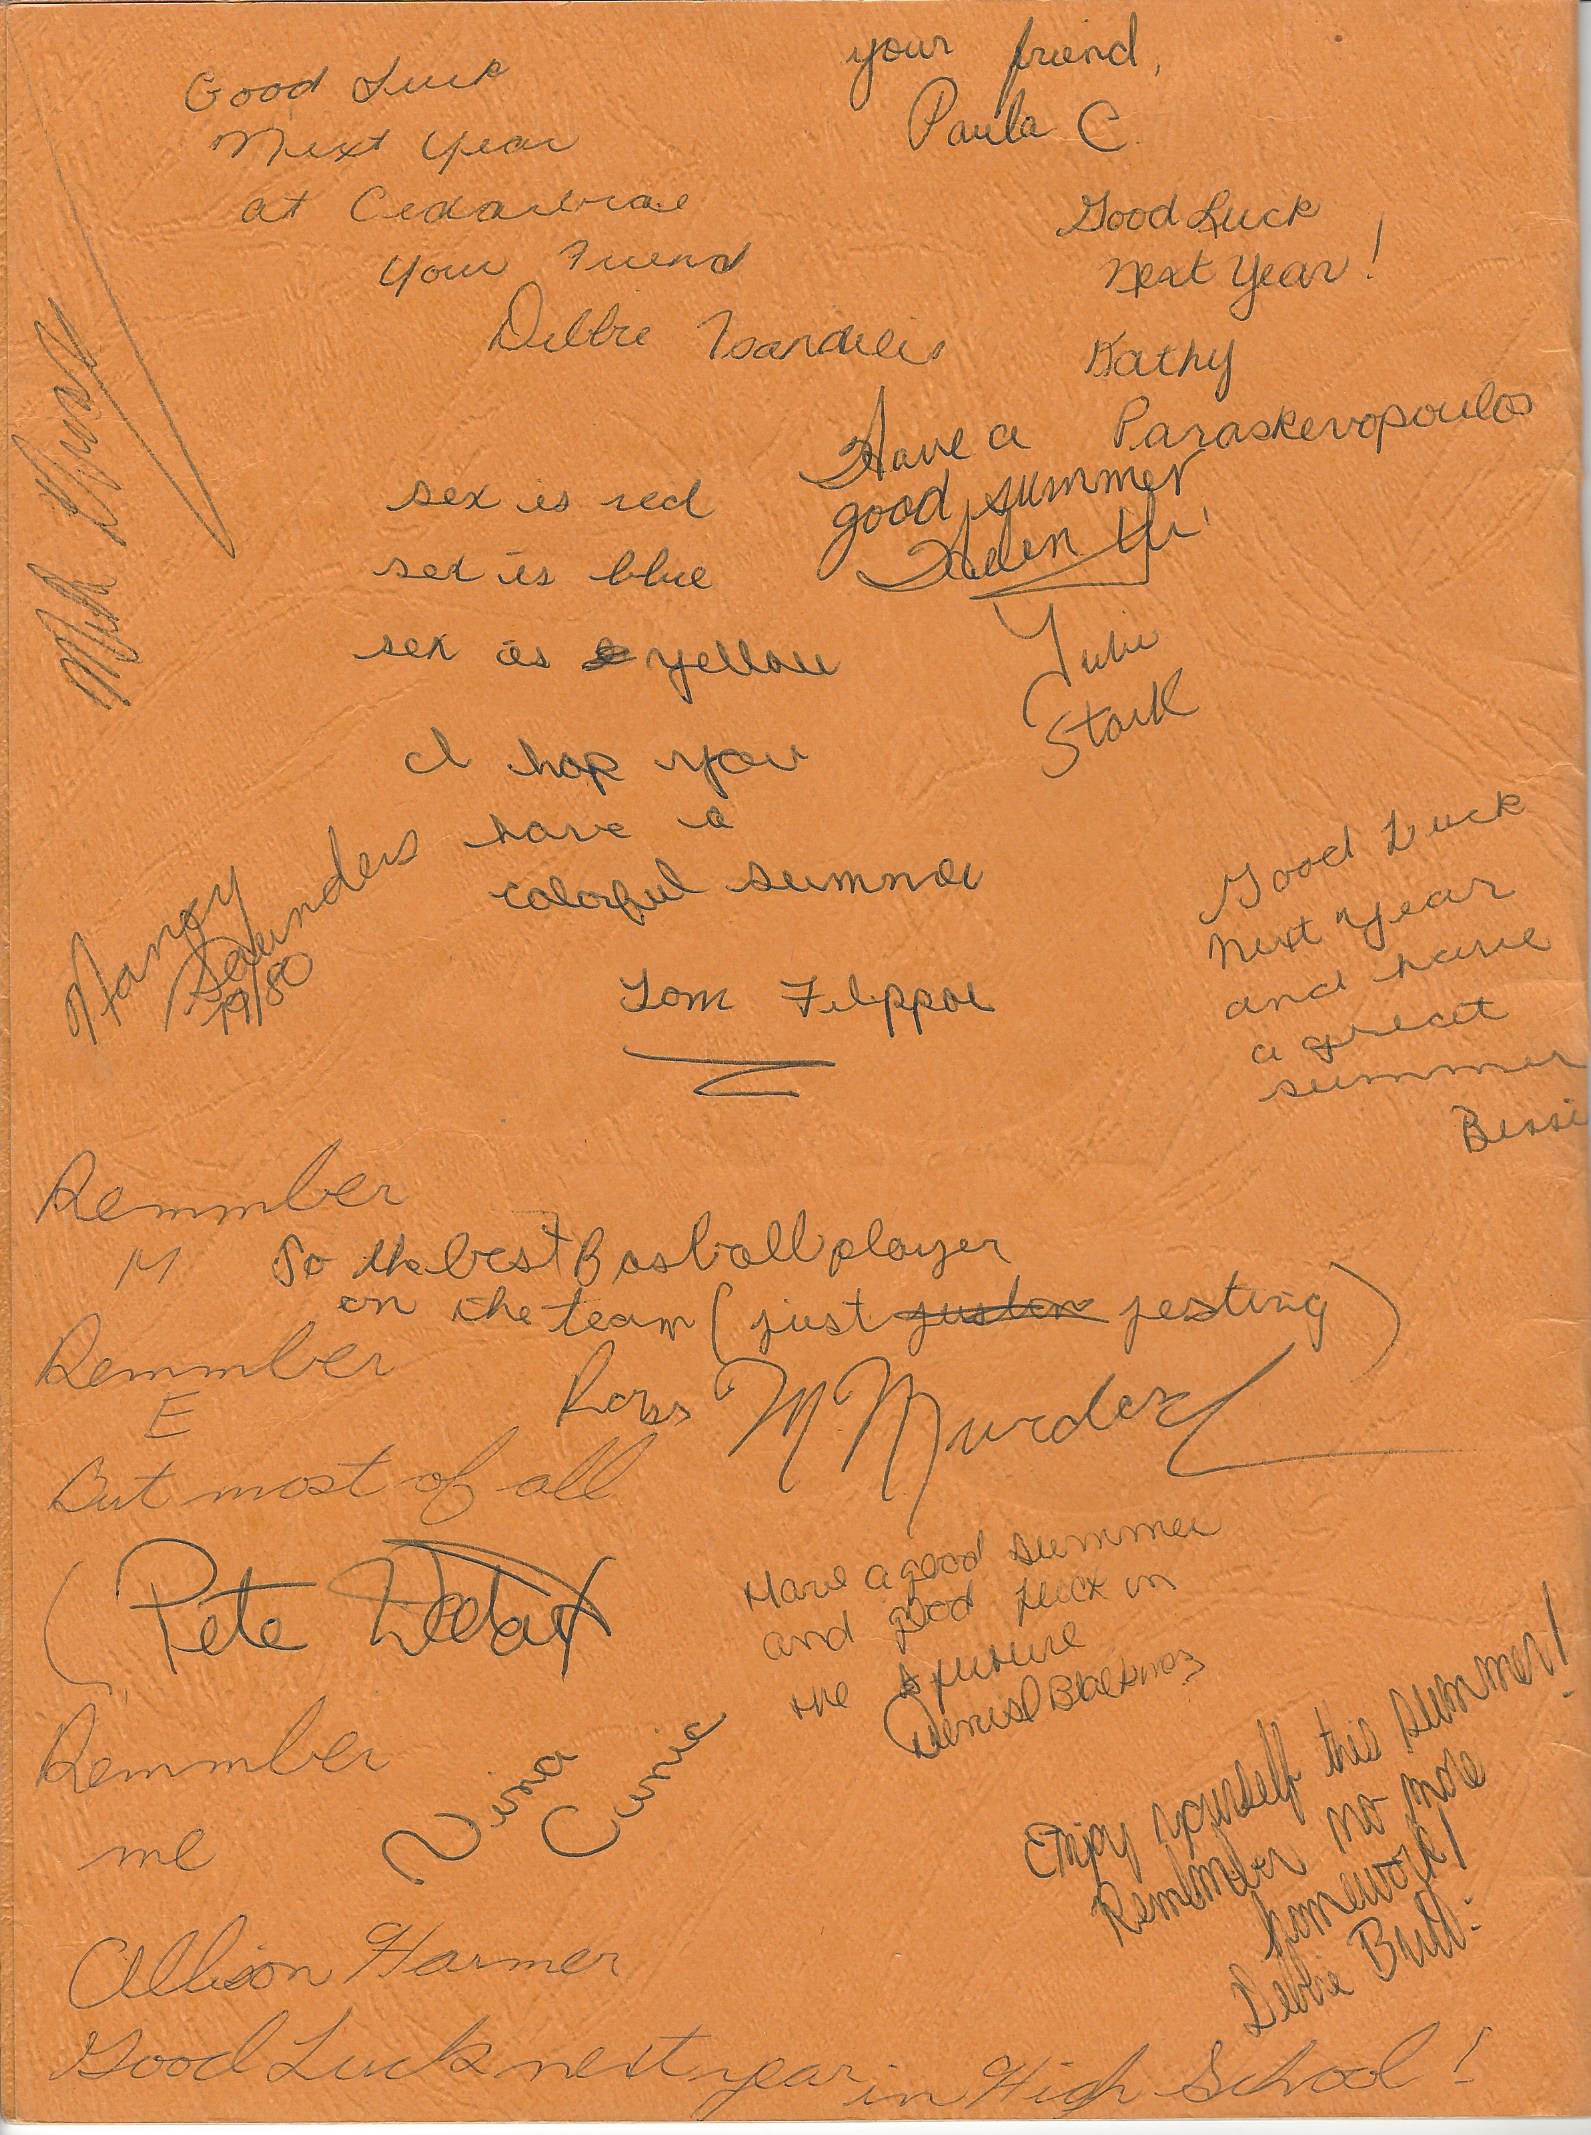 Good Luck
Next Year
at Cedarbrae
Your Friend
Debbie
your friend,
Paula C.
Good Luck
Next Year!
Kathy
Paraskevopoulos
Have a
good summer
Helen
Julie
Stark
sex is red
sex is blue
sex is yellow
I hop you
have a
colorful
Tom
Nancy
Saunders
79/80
Good Luck
next year
and have
a great
summer
Bessi
Remmber
M
To the best Basball player
on the team (just jesting)
Ross
Remmber
E
But most of all
Pete
Remmber
me
Allison Harmer
Good Luck next year in High School!
Have a good summer
and good luck in
the future
Nina
Enjoy yourself this summer!
Remember no more
homework!
Debbie